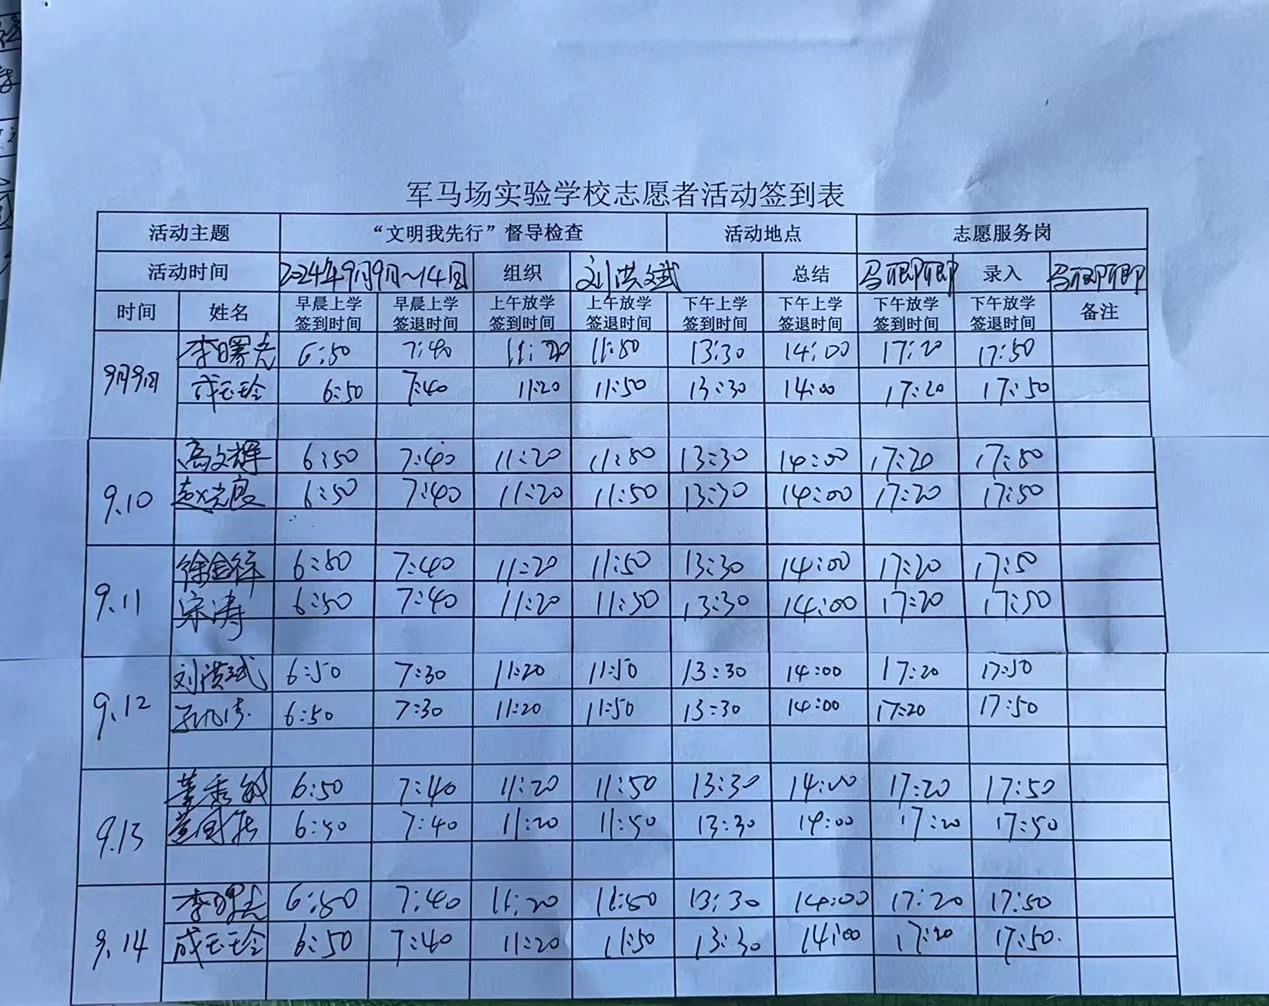 军马场实验学校志愿者活动签到表
活动主题 “文明我先行”督导检查 活动地点 志愿服务岗
活动时间 2024年9月9日~14日 组织 刘洪斌 总结 马 录入 马
时间 姓名 早晨上学签到时间 早晨上学签退时间 上午放学签到时间 上午放学签退时间 下午上学签到时间 下午上学签退时间 下午放学签到时间 下午放学签退时间 备注
9月9日 李曙光 6:50 7:40 11:20 11:50 13:30 14:00 17:20 17:50
成玉玲 6:50 7:40 11:20 11:50 13:30 14:00 17:20 17:50
9.10 高文辉 6:50 7:40 11:20 11:50 13:30 14:00 17:20 17:50
赵光霞 6:50 7:40 11:20 11:50 13:30 14:00 17:20 17:50
9.11 徐金 6:50 7:40 11:20 11:50 13:30 14:00 17:20 17:50
宋涛 6:50 7:40 11:20 11:50 13:30 14:00 17:20 17:50
9.12 刘洪斌 6:50 7:30 11:20 11:50 13:30 14:00 17:20 17:50
6:50 7:30 11:20 11:50 13:30 14:00 17:20 17:50
9.13 董秀敏 6:50 7:40 11:20 11:50 13:30 14:00 17:20 17:50
6:50 7:40 11:20 11:50 13:30 14:00 17:20 17:50
9.14 李曙光 6:50 7:40 11:20 11:50 13:30 14:00 17:20 17:50
成玉玲 6:50 7:40 11:20 11:50 13:30 14:00 17:20 17:50